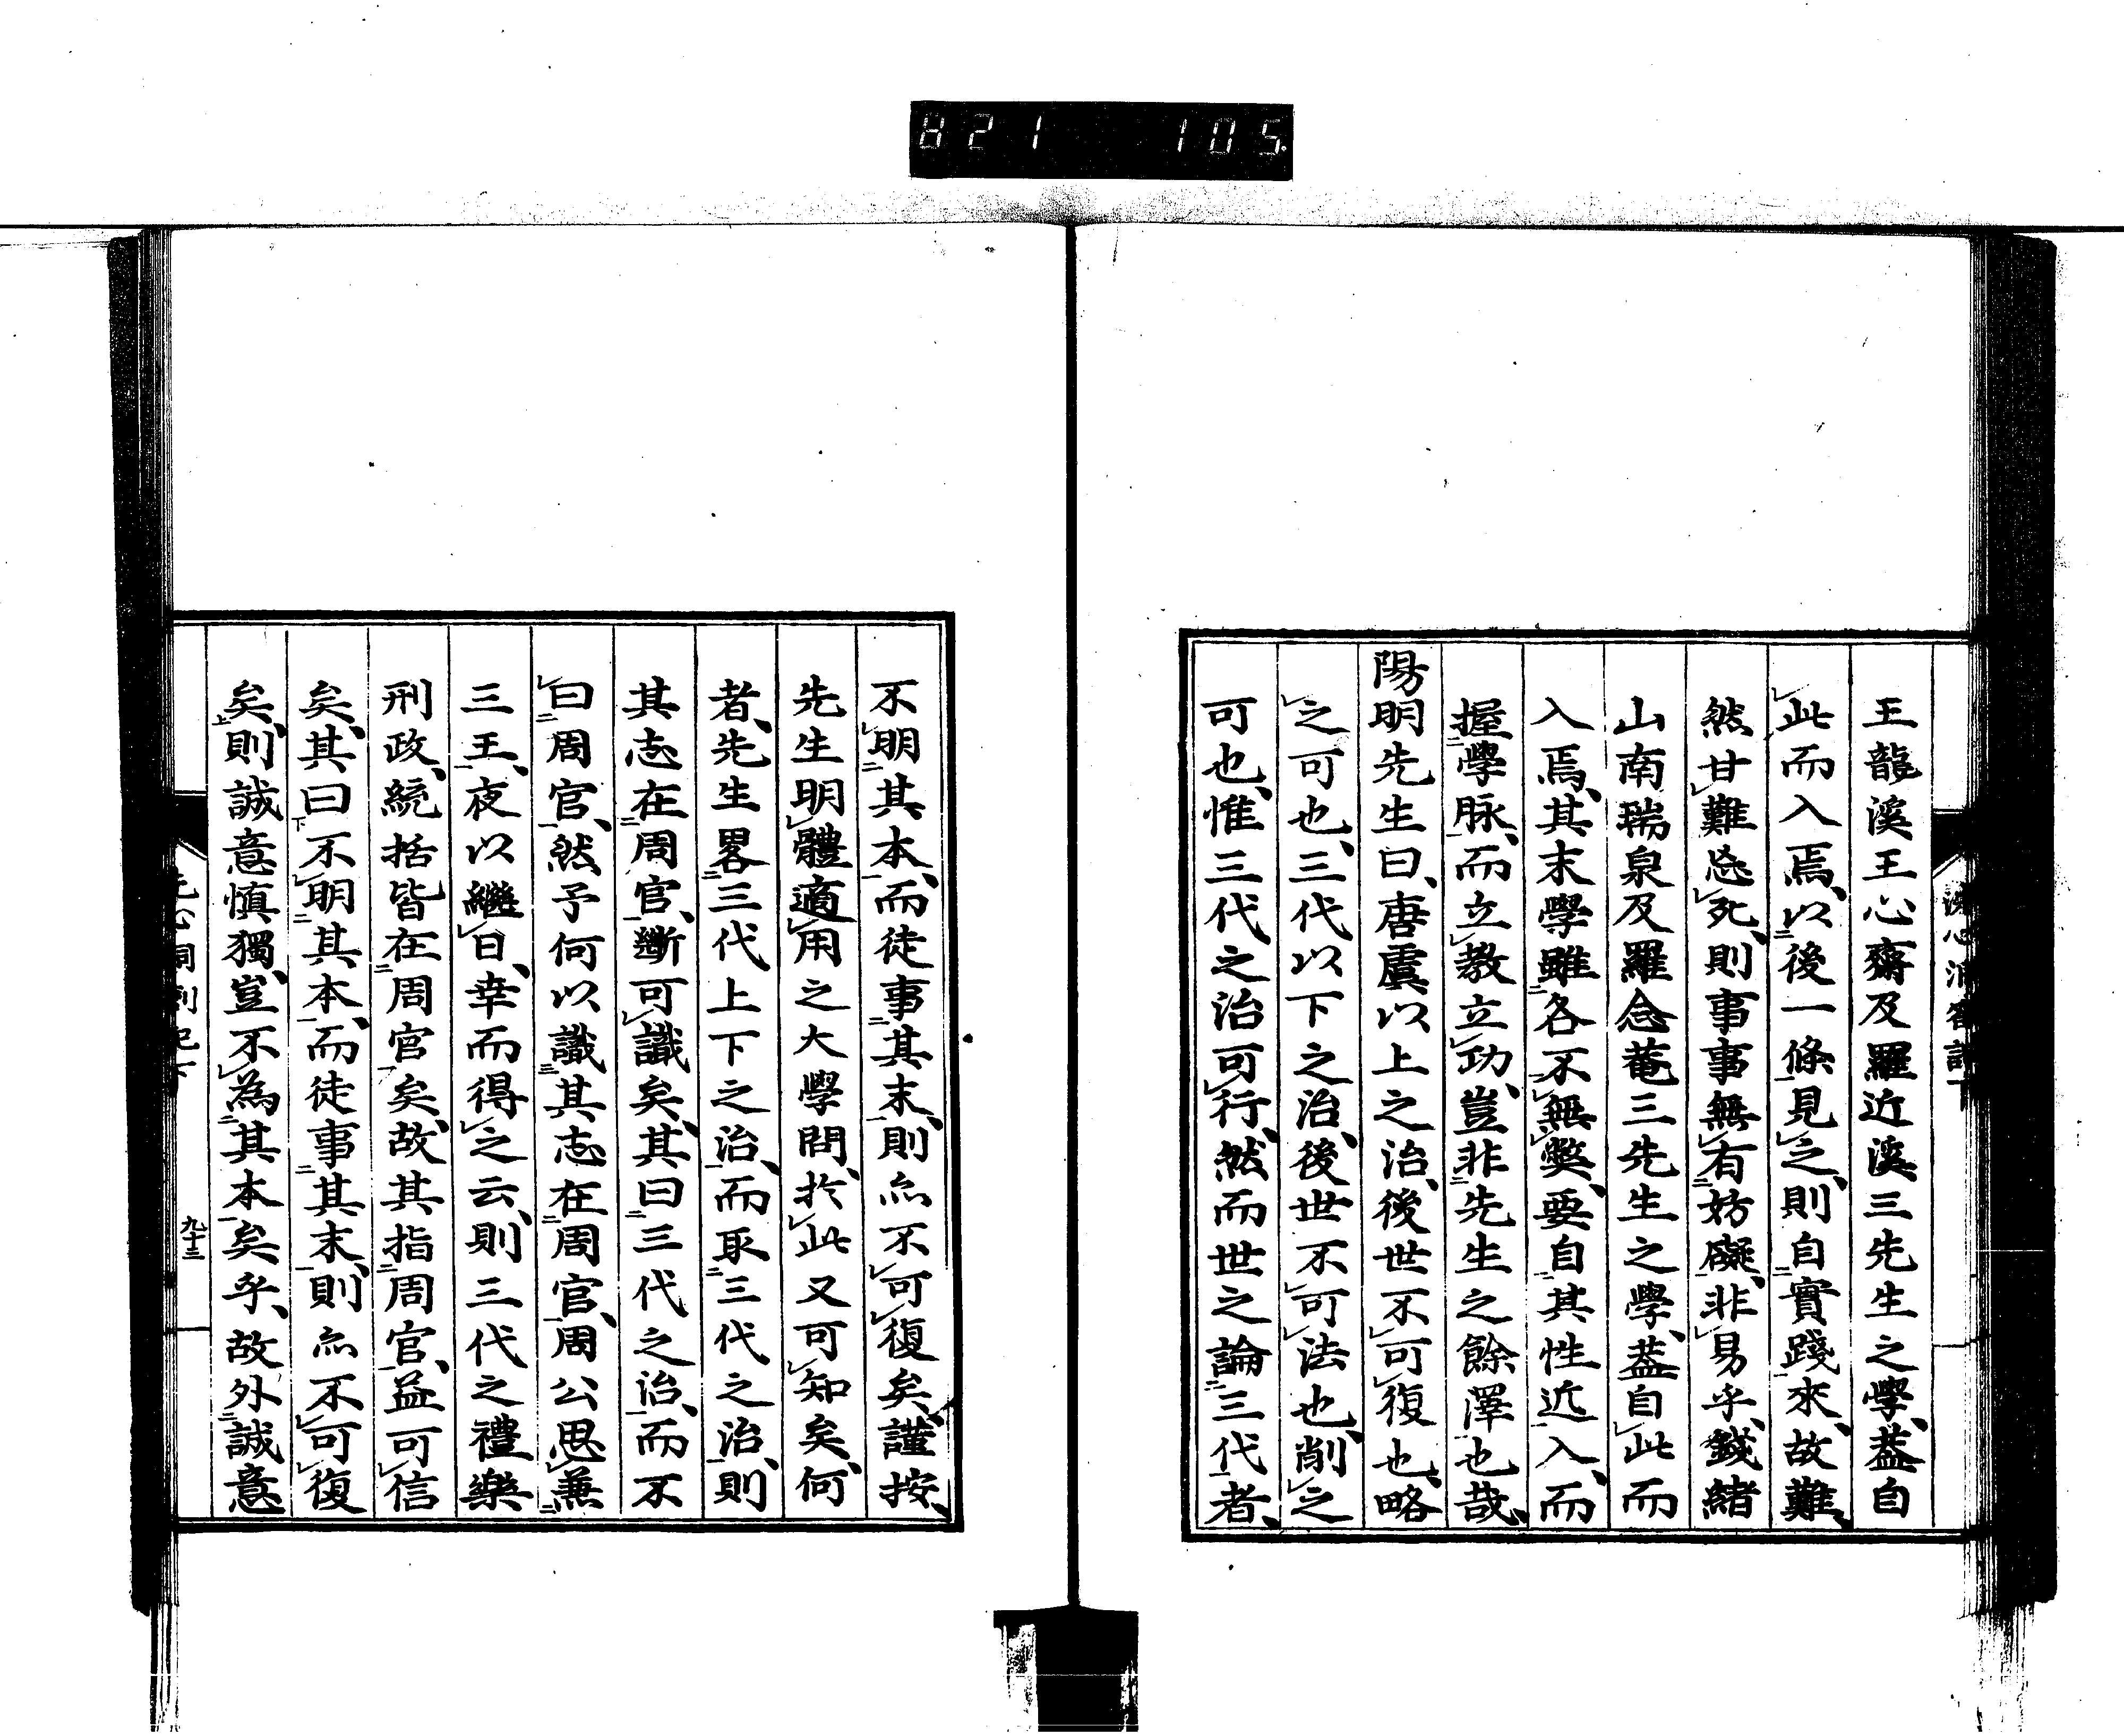 821 105
王龍溪王心齋及羅近溪三先生之學、蓋自
此而入焉、以後一條見之、則自實踐來、故難、
然甘難忘死、則事事無有妨礙、非易乎、錢緒
山南瑞泉及羅念菴三先生之學、蓋自此而
入焉、其末學雖各不無弊、要自其性近入、而
握學脉、而立教立功、豈非先生之餘澤也哉、
陽明先生曰、唐虞以上之治、後世不可復也、略
之可也、三代以下之治、後世不可法也、削之
可也、惟三代之治可行、然而世之論三代者、
不明其本、而徒事其末、則亦不可復矣、謹按、
先生明體適用之大學問、於此又可知矣、何
者、先生畧三代上下之治、而取三代之治、則
其志在周官、斷可識矣、其曰三代之治、而不
曰周官、然予何以識其志在周官、周公思兼
三王、夜以繼日、幸而得之云、則三代之禮樂
刑政、統括皆在周官矣、故其指周官、益可信
矣、其曰不明其本、而徒事其末、則亦不可復
矣、則誠意慎獨、豈不為其本矣乎、故外誠意
九十三